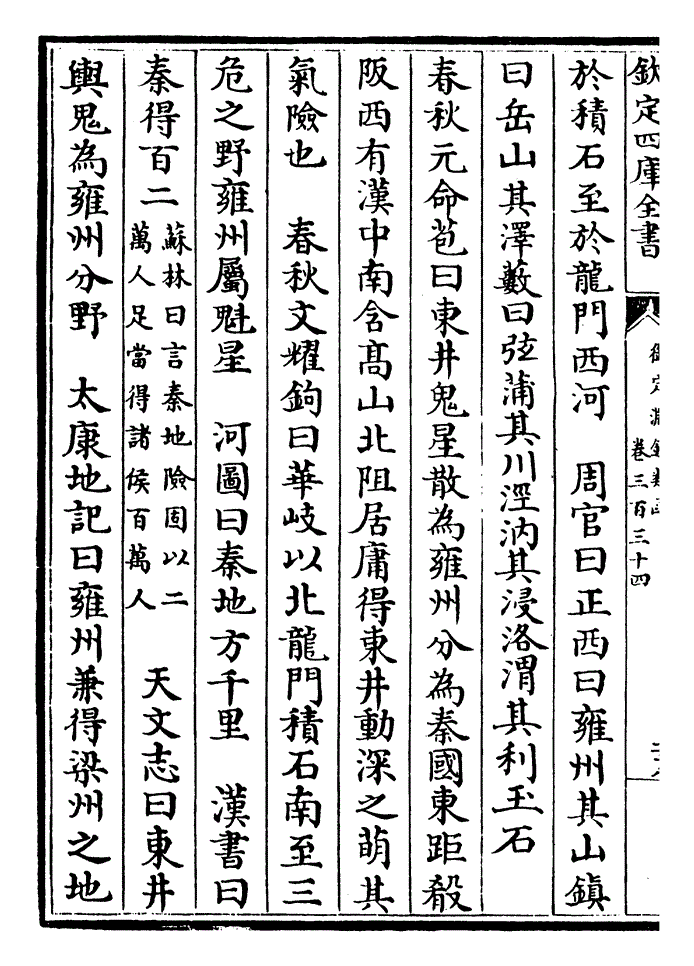 欽定四庫全書
御定淵鑑類函
卷三百三十四
於積石至於龍門西河　周官曰正西曰雍州其山鎮
曰岳山其澤藪曰弦蒲其川涇汭其浸洛渭其利玉石
春秋元命苞曰東井鬼星散為雍州分為秦國東距殽
阪西有漢中南含高山北阻居庸得東井動深之萌其
氣險也　春秋文耀鉤曰華岐以北龍門積石南至三
危之野雍州屬魁星　河圖曰秦地方千里　漢書曰
秦得百二
蘇林曰言秦地險固以二
萬人足當得諸侯百萬人
天文志曰東井
輿鬼為雍州分野　太康地記曰雍州兼得梁州之地